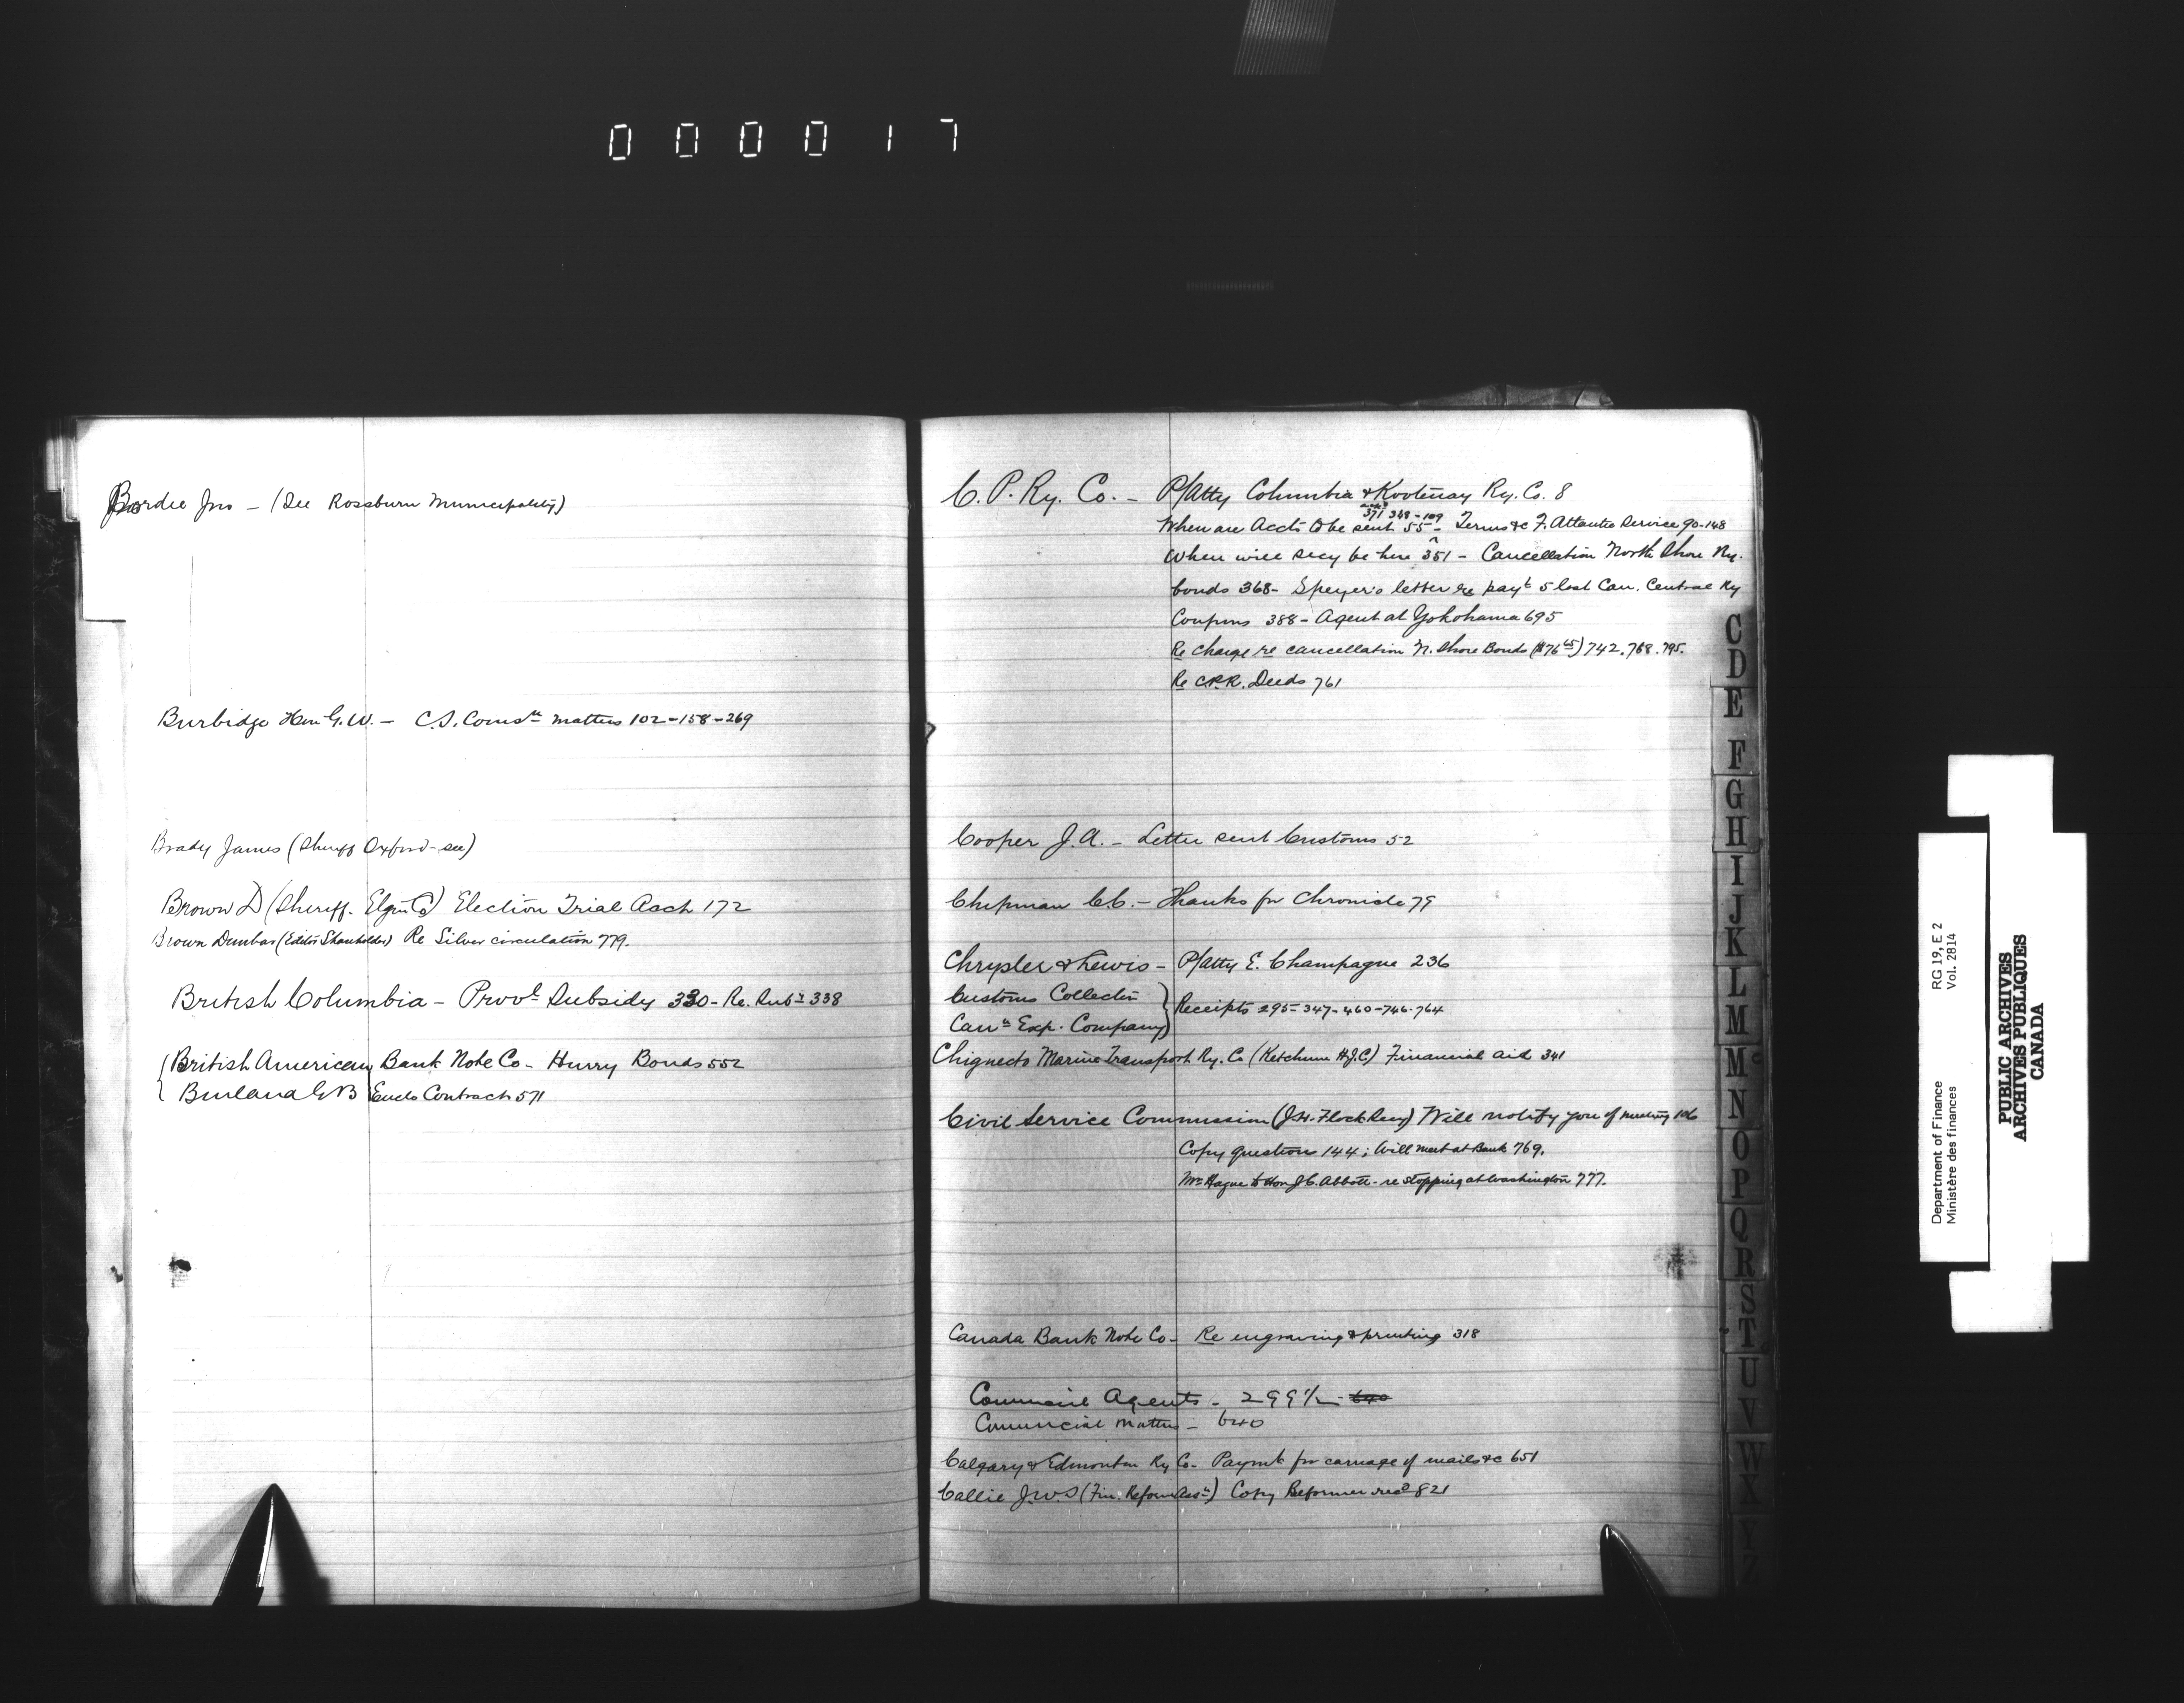 000017
Bordie Jno - (See Rossburn Municipality)
Burbidge Hon G.W. - C.S. Comsn matters 102-158-269
Brady James (Sheriff Oxford-see)
Brown D (Sheriff. Elgin Co) Election Trial Acct 172
Brown Dunbar (Editor Shareholder) Re Silver circulation 779.
British Columbia - Provl Subsidy 330- Re. Suby 338
British American Bank Note Co- Hurry Bonds 552
Burland G B Encls Contract 571
C. P. Ry. Co. - P/Atty Columbia & Kootenay Ry. Co. 8
371 348-109
When are Accts to be sent 55 - Terms &c F. Atlantic Service 90-148
When will secy be here 351 - Cancellation North Shore Ry.
bonds 368- Speyer's letter re payt 5 lost Can. Central Ry
Coupons 388 - Agent at Yokohama 695
Re charge re cancellation N. Shore Bonds ($76 65) 742. 768. 795.
Re C.P.R. Deeds 761
Cooper J.A. - Letter sent Customs 52
Chipman C.C. - Thanks for Chronicle 79
Chrysler & Lewis - P/Atty E. Champagne 236
Customs Collector
Cann Exp. Company
Receipts 295-347-460-746-764
Chignecto Marine Transport Ry. Co (Ketchum H.J.C) Financial aid 341
Civil Service Commission (J.H. Flock Secy) Will notify you of meeting 106
Copy questions 144; Will meet at Bank 769.
Mr Hague to Hon J.C. Abbott - re stopping at Washington 777.
Canada Bank Note Co- Re engraving & printing 318
Commercial Agents - 299½ - 640
Commercial Matters - 640
Calgary & Edmonton Ry Co- Paymt for carriage of mails &c 651
Callie J.W.S (Fin. Reform Assn) Copy Reformer recd 821
C
D
E
F
G
H
I
J
K
L
M
Mc
N
O
P
Q
R
S
T
U
V
W
X
Y
Z
Department of Finance RG 19, E 2
Ministère des finances Vol. 2814
PUBLIC ARCHIVES
ARCHIVES PUBLIQUES
CANADA